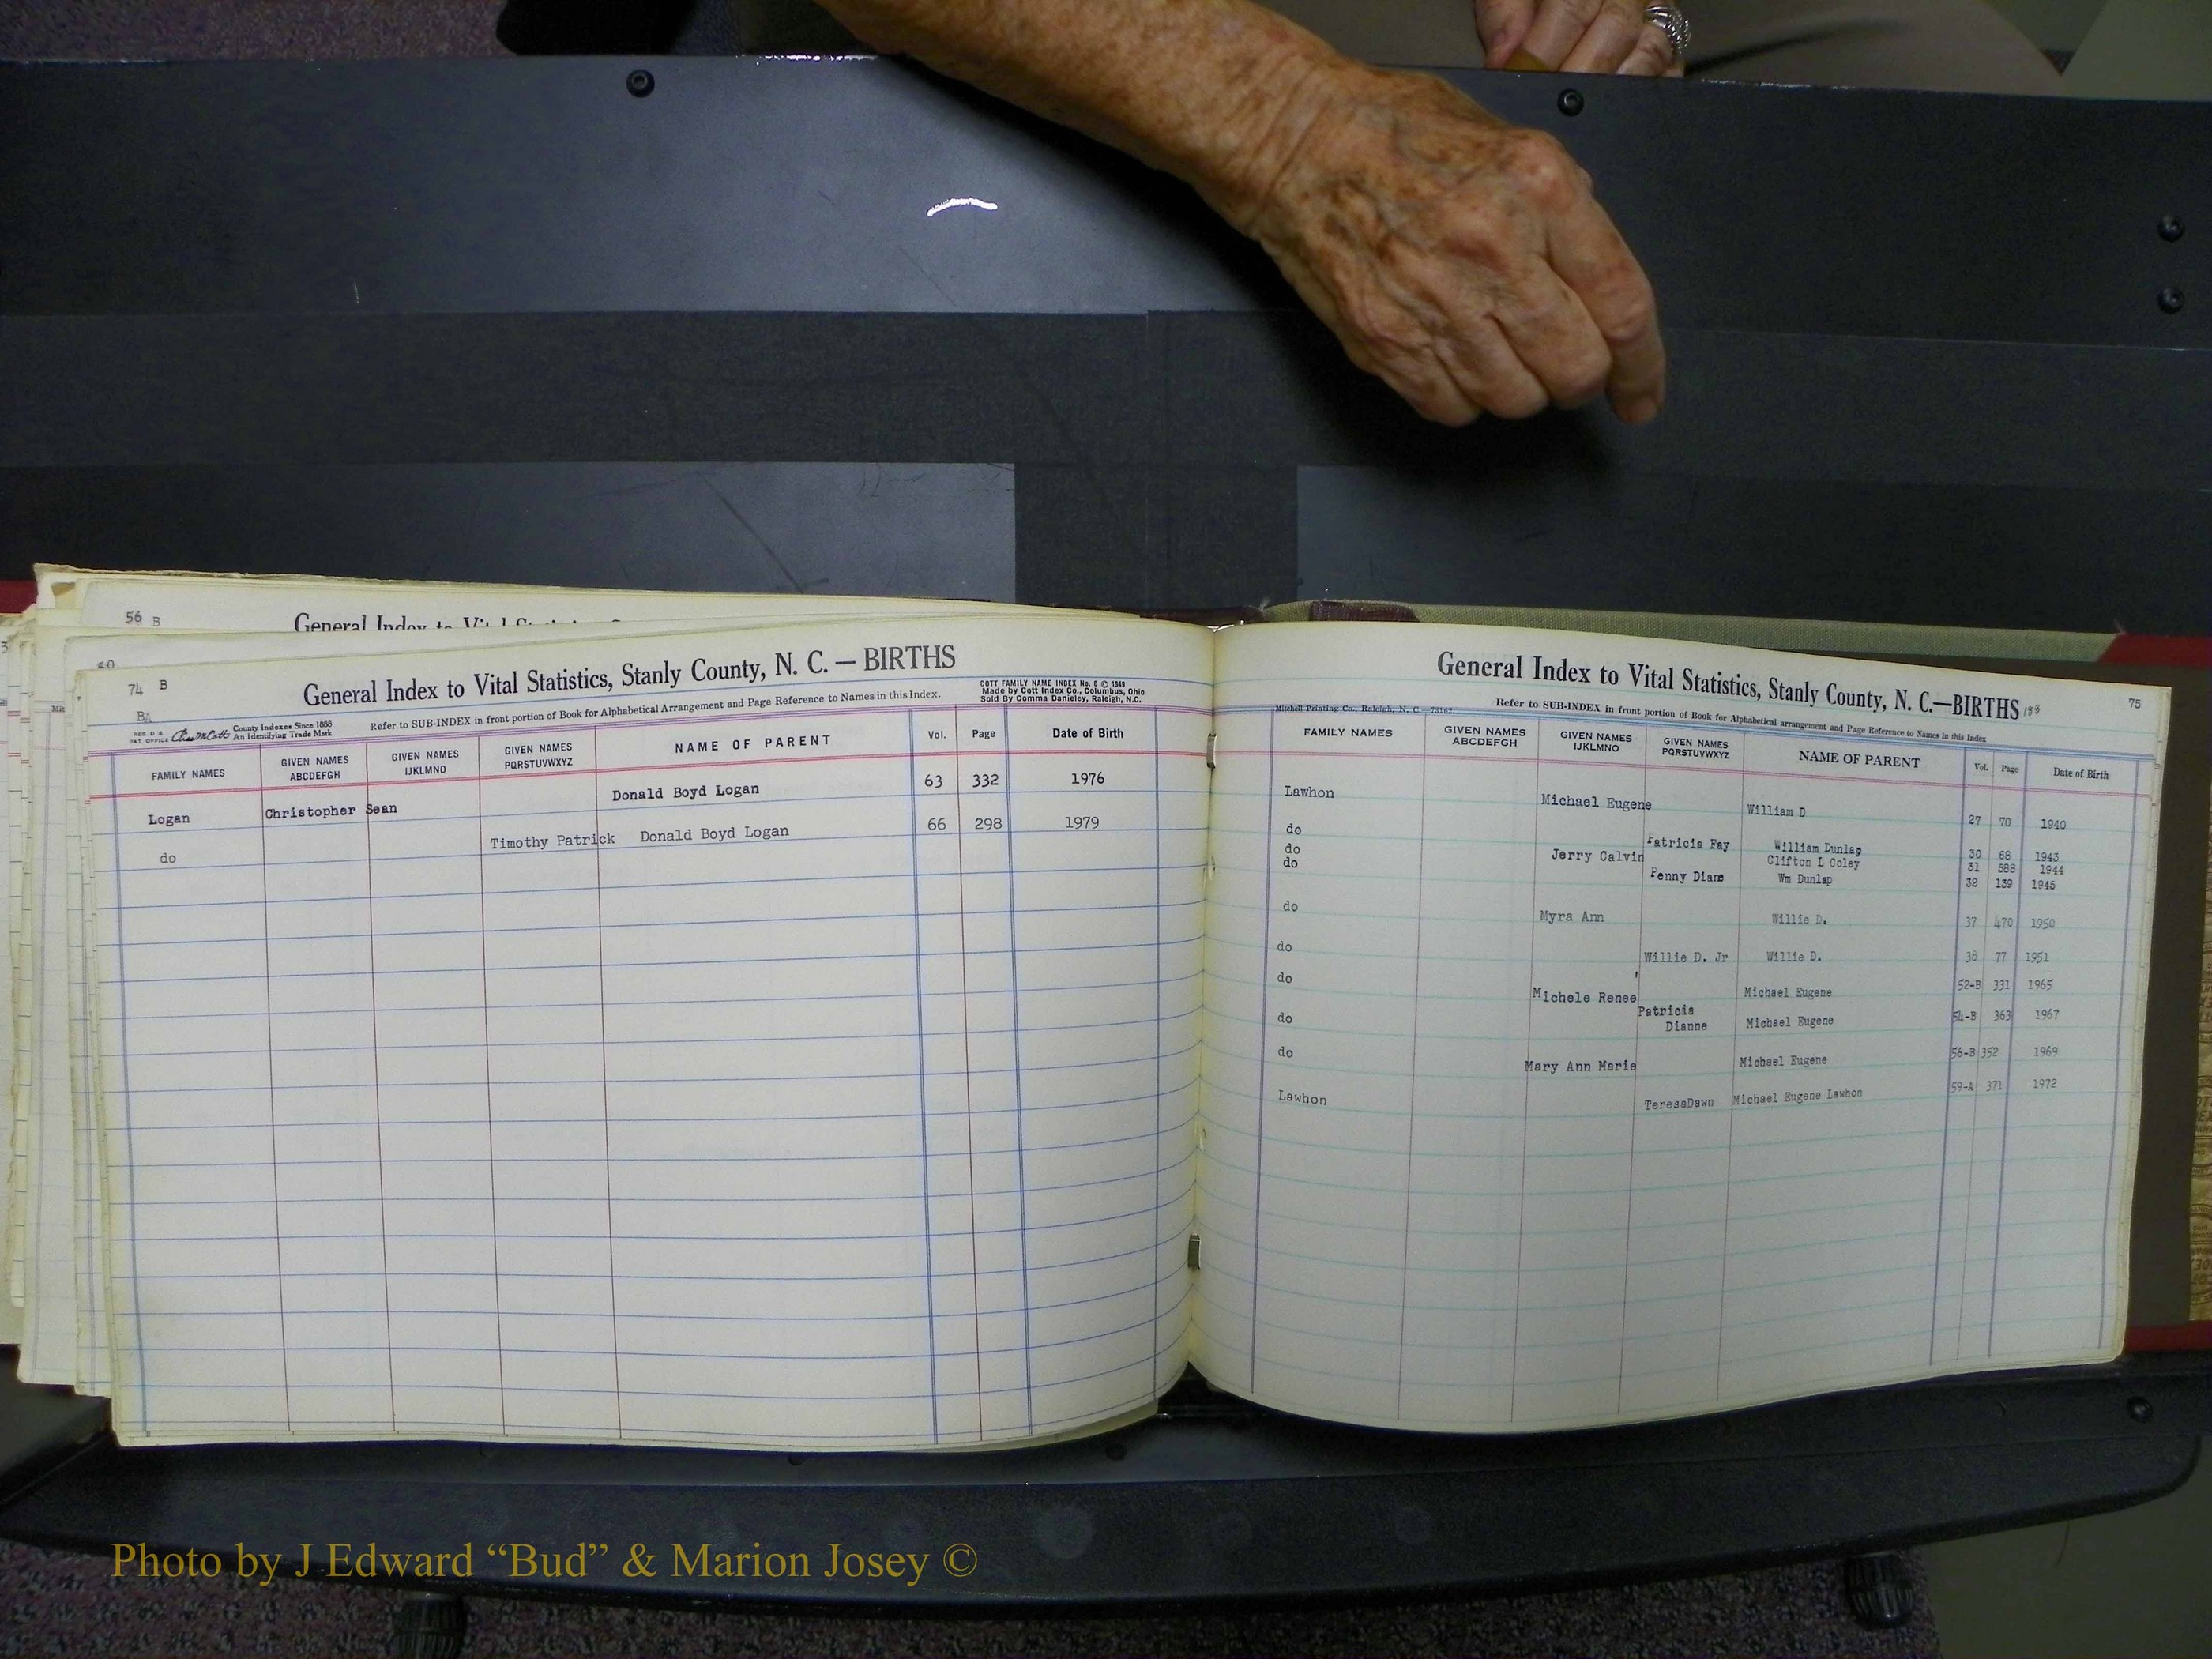 56 B
General Index to Vital Statistics
74 B
BA
General Index to Vital Statistics, Stanly County, N. C. — BIRTHS
COTT FAMILY NAME INDEX No. 0 © 1949
Made by Cott Index Co., Columbus, Ohio
Sold By Comma Danieley, Raleigh, N.C.
REG. U S PAT OFFICE County Indexes Since 1888
An Identifying Trade Mark
Refer to SUB-INDEX in front portion of Book for Alphabetical Arrangement and Page Reference to Names in this Index.
FAMILY NAMES GIVEN NAMES ABCDEFGH GIVEN NAMES IJKLMNO GIVEN NAMES PQRSTUVWXYZ NAME OF PARENT Vol. Page Date of Birth
Logan Christopher Sean Donald Boyd Logan 63 332 1976
do Timothy Patrick Donald Boyd Logan 66 298 1979
General Index to Vital Statistics, Stanly County, N. C.—BIRTHS 188
75
Mitchell Printing Co., Raleigh, N. C.
Refer to SUB-INDEX in front portion of Book for Alphabetical arrangement and Page Reference to Names in this Index
FAMILY NAMES GIVEN NAMES ABCDEFGH GIVEN NAMES IJKLMNO GIVEN NAMES PQRSTUVWXYZ NAME OF PARENT Vol. Page Date of Birth
Lawhon Michael Eugene William D 27 70 1940
do Patricia Fay William Dunlap 30 68 1943
do Jerry Calvin Clifton L Coley 31 588 1944
do Penny Diane Wm Dunlap 32 139 1945
do Myra Ann Willie D. 37 470 1950
do Willie D. Jr Willie D. 38 77 1951
do Michele Renee Michael Eugene 52-B 331 1965
do Patricia Dianne Michael Eugene 54-B 363 1967
do Mary Ann Marie Michael Eugene 56-B 352 1969
Lawhon TeresaDawn Michael Eugene Lawhon 59-A 371 1972
Photo by J Edward “Bud” & Marion Josey ©